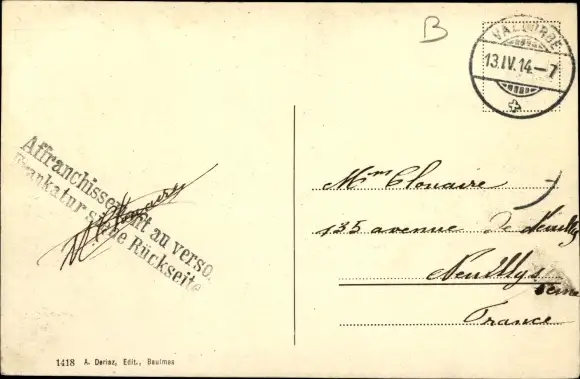 B
VALLORBE
13.IV.14.–7
Affranchissement au verso.
Frankatur siehe Rückseite
Mme Clouaire
135 avenue de Neuilly
Neuillys
Seine
France
1418 A. Deriaz, Edit., Baulmes